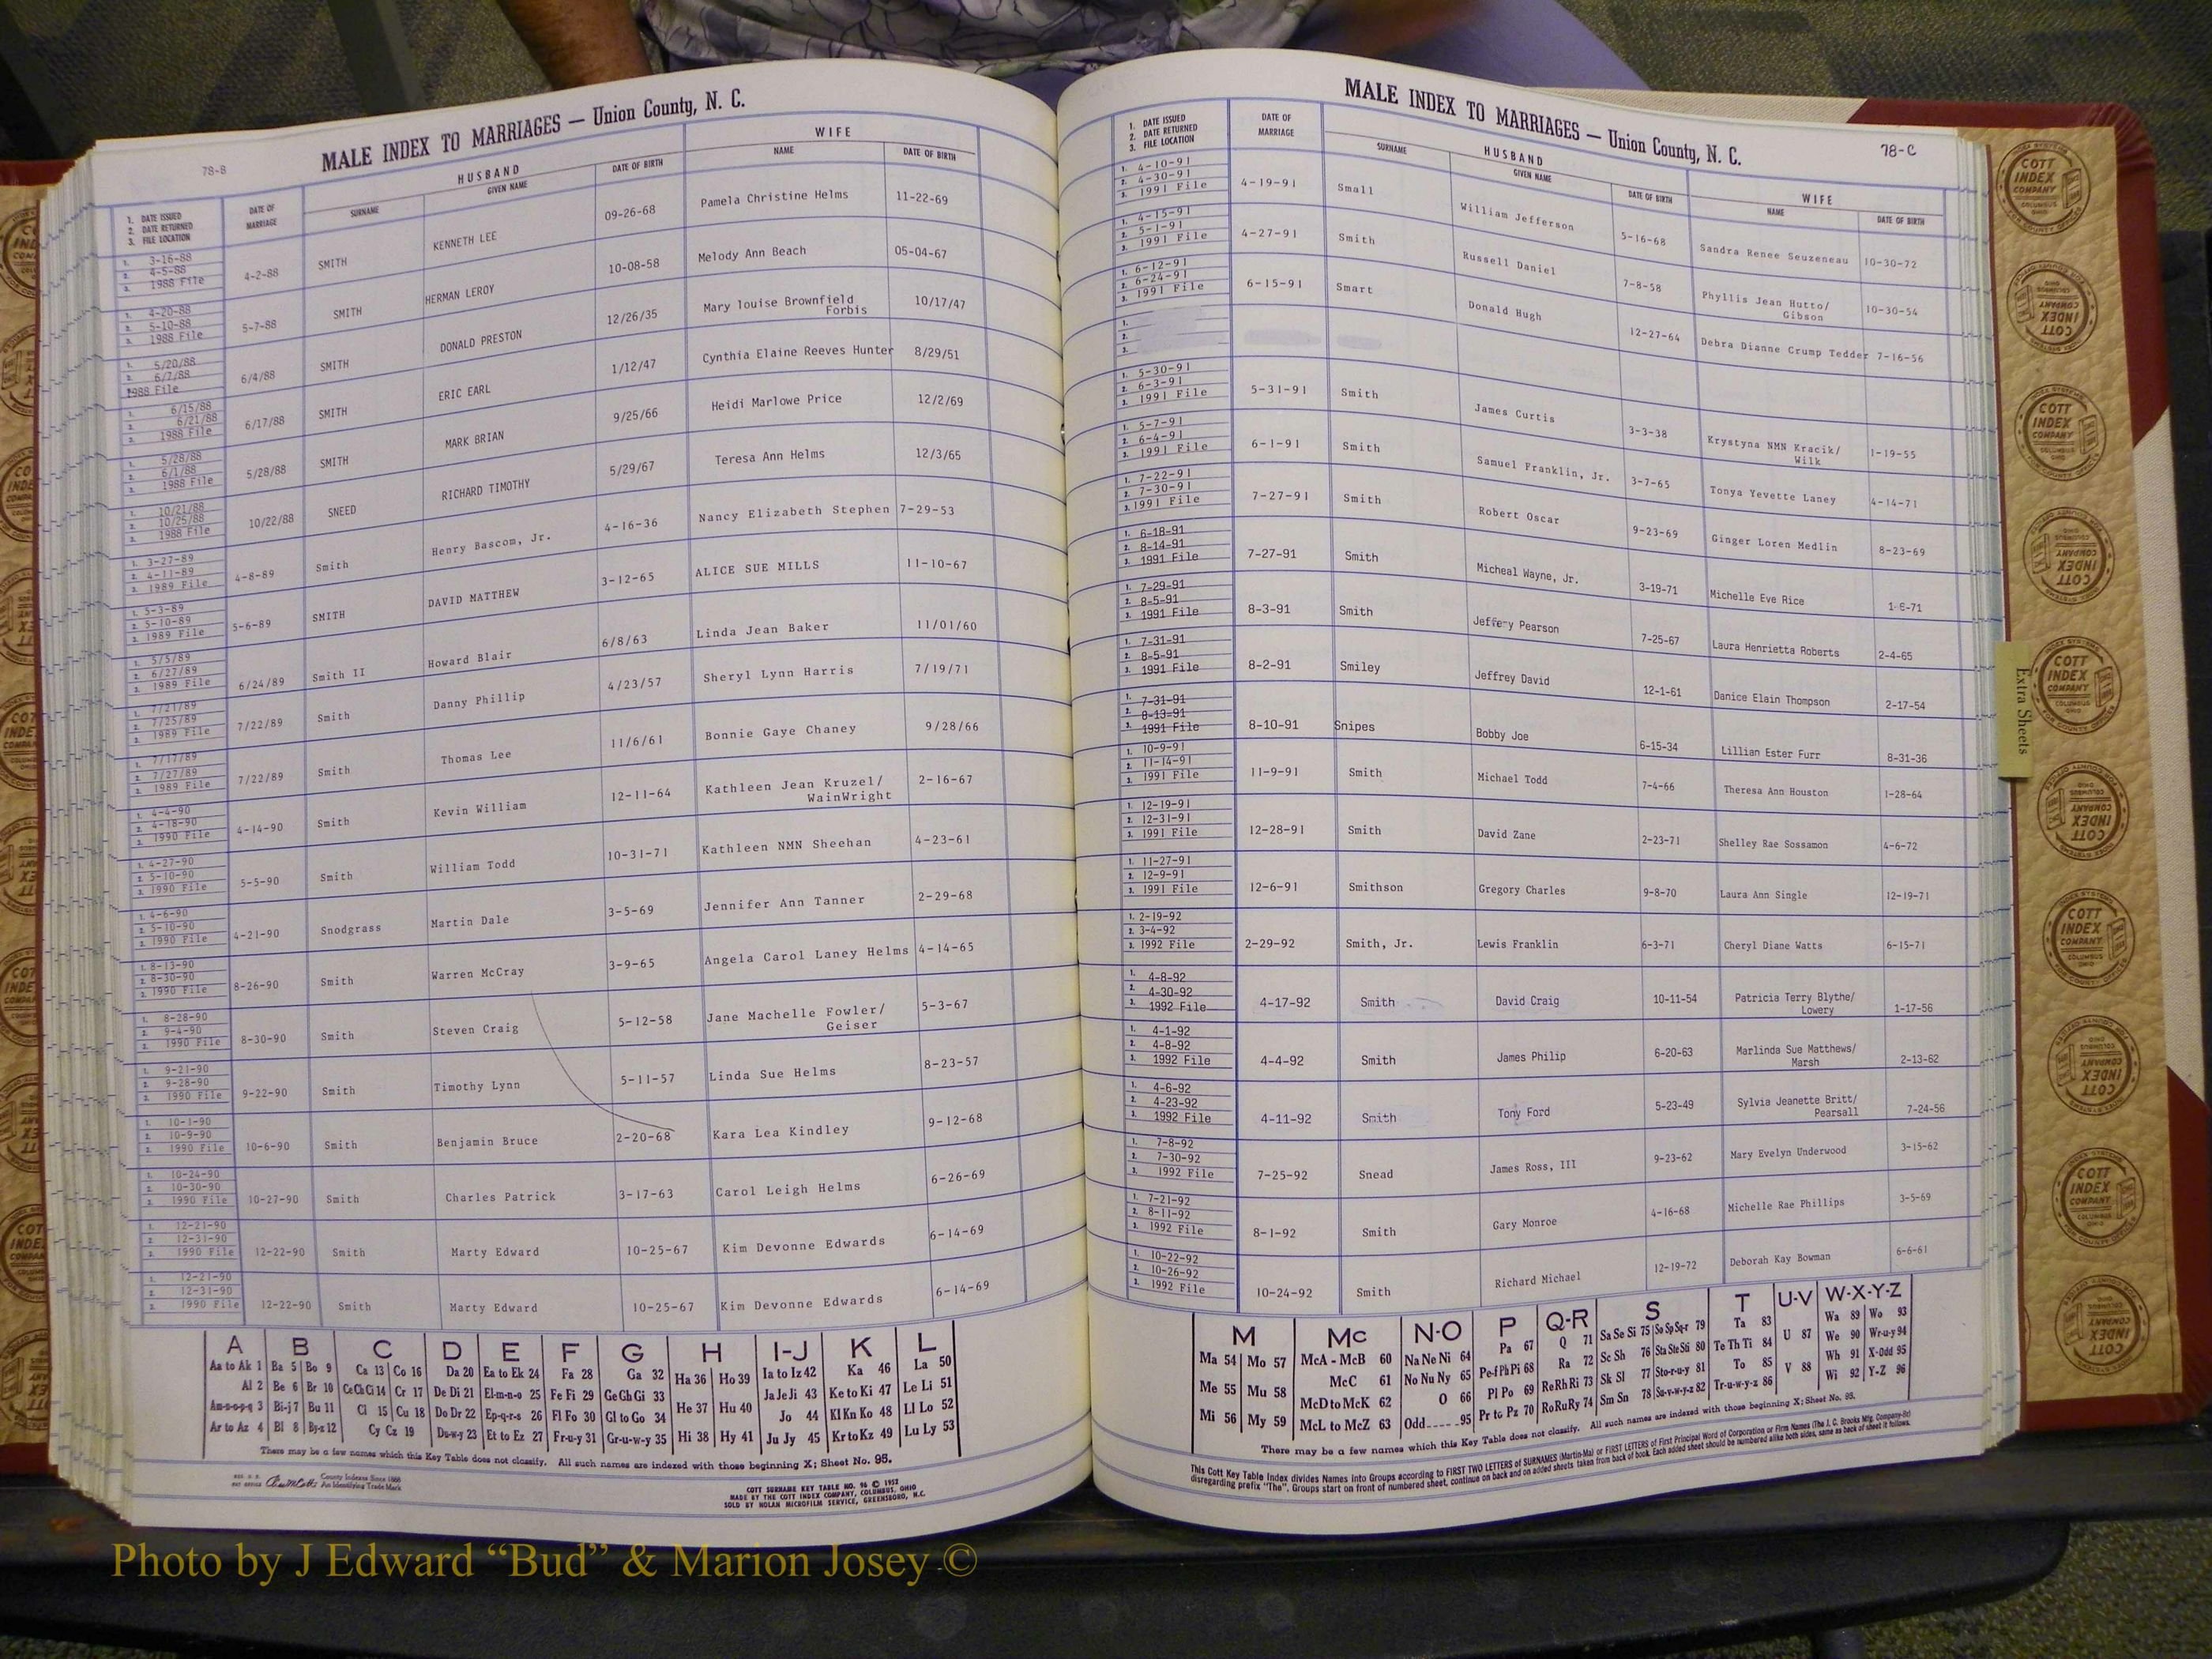 78-B
MALE INDEX TO MARRIAGES — Union County, N. C.
1. DATE ISSUED
2. DATE RETURNED
3. FILE LOCATION
DATE OF MARRIAGE
HUSBAND
SURNAME GIVEN NAME DATE OF BIRTH
WIFE
NAME DATE OF BIRTH
1. 3-16-88
2. 4-5-88
3. 1988 File
4-2-88 SMITH KENNETH LEE 09-26-68 Pamela Christine Helms 11-22-69
1. 4-20-88
2. 5-10-88
3. 1988 File
5-7-88 SMITH HERMAN LEROY 10-08-58 Melody Ann Beach 05-04-67
1. 5/20/88
2. 6/7/88
1988 File
6/4/88 SMITH DONALD PRESTON 12/26/35 Mary louise Brownfield 10/17/47
Forbis
1. 6/15/88
2. 6/21/88
3. 1988 File
6/17/88 SMITH ERIC EARL 1/12/47 Cynthia Elaine Reeves Hunter 8/29/51
1. 5/28/88
2. 6/1/88
3. 1988 File
5/28/88 SMITH MARK BRIAN 9/25/66 Heidi Marlowe Price 12/2/69
1. 10/21/88
2. 10/25/88
3. 1988 File
10/22/88 SNEED RICHARD TIMOTHY 5/29/67 Teresa Ann Helms 12/3/65
1. 3-27-89
2. 4-11-89
3. 1989 File
4-8-89 Smith Henry Bascom, Jr. 4-16-36 Nancy Elizabeth Stephen 7-29-53
1. 5-3-89
2. 5-10-89
3. 1989 File
5-6-89 SMITH DAVID MATTHEW 3-12-65 ALICE SUE MILLS 11-10-67
1. 5/5/89
2. 6/27/89
3. 1989 File
6/24/89 Smith II Howard Blair 6/8/63 Linda Jean Baker 11/01/60
1. 7/21/89
2. 7/25/89
3. 1989 File
7/22/89 Smith Danny Phillip 4/23/57 Sheryl Lynn Harris 7/19/71
1. 7/17/89
2. 7/27/89
3. 1989 File
7/22/89 Smith Thomas Lee 11/6/61 Bonnie Gaye Chaney 9/28/66
1. 4-4-90
2. 4-18-90
3. 1990 File
4-14-90 Smith Kevin William 12-11-64 Kathleen Jean Kruzel/ 2-16-67
WainWright
1. 4-27-90
2. 5-10-90
3. 1990 File
5-5-90 Smith William Todd 10-31-71 Kathleen NMN Sheehan 4-23-61
1. 4-6-90
2. 5-10-90
3. 1990 File
4-21-90 Snodgrass Martin Dale 3-5-69 Jennifer Ann Tanner 2-29-68
1. 8-13-90
2. 8-30-90
3. 1990 File
8-26-90 Smith Warren McCray 3-9-65 Angela Carol Laney Helms 4-14-65
1. 8-28-90
2. 9-4-90
3. 1990 File
8-30-90 Smith Steven Craig 5-12-58 Jane Machelle Fowler/ 5-3-67
Geiser
1. 9-21-90
2. 9-28-90
3. 1990 File
9-22-90 Smith Timothy Lynn 5-11-57 Linda Sue Helms 8-23-57
1. 10-1-90
2. 10-9-90
3. 1990 File
10-6-90 Smith Benjamin Bruce 2-20-68 Kara Lea Kindley 9-12-68
1. 10-24-90
2. 10-30-90
3. 1990 File
10-27-90 Smith Charles Patrick 3-17-63 Carol Leigh Helms 6-26-69
1. 12-21-90
2. 12-31-90
3. 1990 File
12-22-90 Smith Marty Edward 10-25-67 Kim Devonne Edwards 6-14-69
1. 12-21-90
2. 12-31-90
3. 1990 File
12-22-90 Smith Marty Edward 10-25-67 Kim Devonne Edwards 6-14-69
A B C D E F G H I-J K L
Aa to Ak 1 Ba 5 Bo 9 Ca 13 Co 16 Da 20 Ea to Ek 24 Fa 28 Ga 32 Ha 36 Ho 39 Ia to Iz 42 Ka 46 La 50
Al 2 Be 6 Br 10 Ce Ch Ci 14 Cr 17 De Di 21 El-m-n-o 25 Fe Fi 29 Ge Gh Gi 33 He 37 Hu 40 Ja Je Ji 43 Ke to Ki 47 Le Li 51
Am-n-o-p-q 3 Bi-j 7 Bu 11 Cl 15 Cu 18 Do Dr 22 Ep-q-r-s 26 Fl Fo 30 Gl to Go 34 Hi 38 Hy 41 Jo 44 Kl Kn Ko 48 Ll Lo 52
Ar to Az 4 Bl 8 By-z 12 Cy Cz 19 Du-w-y 23 Et to Ez 27 Fr-u-y 31 Gr-u-w-y 35 Ju Jy 45 Kr to Kz 49 Lu Ly 53
There may be a few names which this Key Table does not classify. All such names are indexed with those beginning X; Sheet No. 95.
County Indexes Since 1888
An Identifying Trade Mark
COTT SURNAME KEY TABLE NO. 96 © 1952
MADE BY THE COTT INDEX COMPANY, COLUMBUS, OHIO
SOLD BY NOLAN MICROFILM SERVICE, GREENSBORO, N.C.
MALE INDEX TO MARRIAGES — Union County, N. C.
78-C
1. DATE ISSUED
2. DATE RETURNED
3. FILE LOCATION
DATE OF MARRIAGE
HUSBAND
SURNAME GIVEN NAME DATE OF BIRTH
WIFE
NAME DATE OF BIRTH
1. 4-10-91
2. 4-30-91
3. 1991 File
4-19-91 Small William Jefferson 5-16-68 Sandra Renee Seuzeneau 10-30-72
1. 4-15-91
2. 5-1-91
3. 1991 File
4-27-91 Smith Russell Daniel 7-8-58 Phyllis Jean Hutto/ 10-30-54
Gibson
1. 6-12-91
2. 6-24-91
3. 1991 File
6-15-91 Smart Donald Hugh 12-27-64 Debra Dianne Crump Tedder 7-16-56
1.
2.
3.
1. 5-30-91
2. 6-3-91
3. 1991 File
5-31-91 Smith James Curtis 3-3-38 Krystyna NMN Kracik/ 1-19-55
Wilk
1. 5-7-91
2. 6-4-91
3. 1991 File
6-1-91 Smith Samuel Franklin, Jr. 3-7-65 Tonya Yevette Laney 4-14-71
1. 7-22-91
2. 7-30-91
3. 1991 File
7-27-91 Smith Robert Oscar 9-23-69 Ginger Loren Medlin 8-23-69
1. 6-18-91
2. 8-14-91
3. 1991 File
7-27-91 Smith Micheal Wayne, Jr. 3-19-71 Michelle Eve Rice 1-6-71
1. 7-29-91
2. 8-5-91
3. 1991 File
8-3-91 Smith Jeffery Pearson 7-25-67 Laura Henrietta Roberts 2-4-65
1. 7-31-91
2. 8-5-91
3. 1991 File
8-2-91 Smiley Jeffrey David 12-1-61 Danice Elain Thompson 2-17-54
1. 7-31-91
2. 8-13-91
3. 1991 File
8-10-91 Snipes Bobby Joe 6-15-34 Lillian Ester Furr 8-31-36
1. 10-9-91
2. 11-14-91
3. 1991 File
11-9-91 Smith Michael Todd 7-4-66 Theresa Ann Houston 1-28-64
1. 12-19-91
2. 12-31-91
3. 1991 File
12-28-91 Smith David Zane 2-23-71 Shelley Rae Sossamon 4-6-72
1. 11-27-91
2. 12-9-91
3. 1991 File
12-6-91 Smithson Gregory Charles 9-8-70 Laura Ann Single 12-19-71
1. 2-19-92
2. 3-4-92
3. 1992 File
2-29-92 Smith, Jr. Lewis Franklin 6-3-71 Cheryl Diane Watts 6-15-71
1. 4-8-92
2. 4-30-92
3. 1992 File
4-17-92 Smith David Craig 10-11-54 Patricia Terry Blythe/ 1-17-56
Lowery
1. 4-1-92
2. 4-8-92
3. 1992 File
4-4-92 Smith James Philip 6-20-63 Marlinda Sue Matthews/ 2-13-62
Marsh
1. 4-6-92
2. 4-23-92
3. 1992 File
4-11-92 Smith Tony Ford 5-23-49 Sylvia Jeanette Britt/ 7-24-56
Pearsall
1. 7-8-92
2. 7-30-92
3. 1992 File
7-25-92 Snead James Ross, III 9-23-62 Mary Evelyn Underwood 3-15-62
1. 7-21-92
2. 8-11-92
3. 1992 File
8-1-92 Smith Gary Monroe 4-16-68 Michelle Rae Phillips 3-5-69
1. 10-22-92
2. 10-26-92
3. 1992 File
10-24-92 Smith Richard Michael 12-19-72 Deborah Kay Bowman 6-6-61
M Mc N-O P Q-R S T U-V W-X-Y-Z
Ma 54 Mo 57 McA - McB 60 Na Ne Ni 64 Pa 67 Q 71 Sa Se Si 75 So Sp Sq-r 79 Ta 83 U 87 Wa 89 Wo 93
Me 55 Mu 58 McC 61 No Nu Ny 65 Pe-f Ph Pi 68 Ra 72 Sc Sh 76 Sta Ste Sti 80 Te Th Ti 84 V 88 We 90 Wr-u-y 94
Mi 56 My 59 McD to McK 62 O 66 Pl Po 69 Re Rh Ri 73 Sk Sl 77 Sto-r-u-y 81 To 85 Wh 91 X-Odd 95
McL to McZ 63 Odd 95 Pr to Pz 70 Ro Ru Ry 74 Sm Sn 78 Su-v-w-y-z 82 Tr-u-w-y-z 86 Wi 92 Y-Z 96
There may be a few names which this Key Table does not classify. All such names are indexed with those beginning X; Sheet No. 95.
This Cott Key Table Index divides Names into Groups according to FIRST TWO LETTERS of SURNAMES (Martin-Ma) or FIRST LETTERS of First Principal Word of Corporation or Firm Names (The J. C. Brooks Mfg. Company-Br)
disregarding prefix "The". Groups start on front of numbered sheet, continue on back and on added sheets taken from back of book. Each added sheet should be numbered alike both sides, same as back of sheet it follows.
Extra Sheets
COTT INDEX COMPANY COLUMBUS OHIO
Photo by J Edward “Bud” & Marion Josey ©